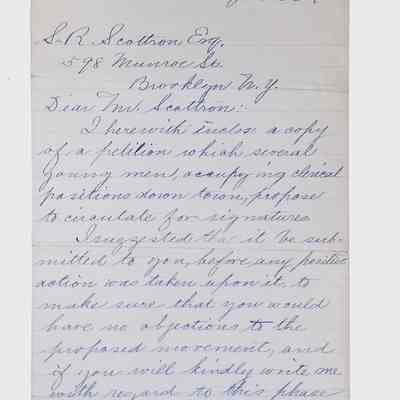 S. R. Scottron Esq.
598 Munroe St.
Brooklyn N.Y.
Dear Mr. Scottron:
I herewith inclose a copy
of a petition which several
young men, occupying clerical
positions down town, propose
to circulate for signatures
I suggested tha it be sub-
mitted to you, before any positive
action was taken upon it, to
make sure that you would
have no objections to the
proposed movement, and
if you will kindly write me
with regard to this phase